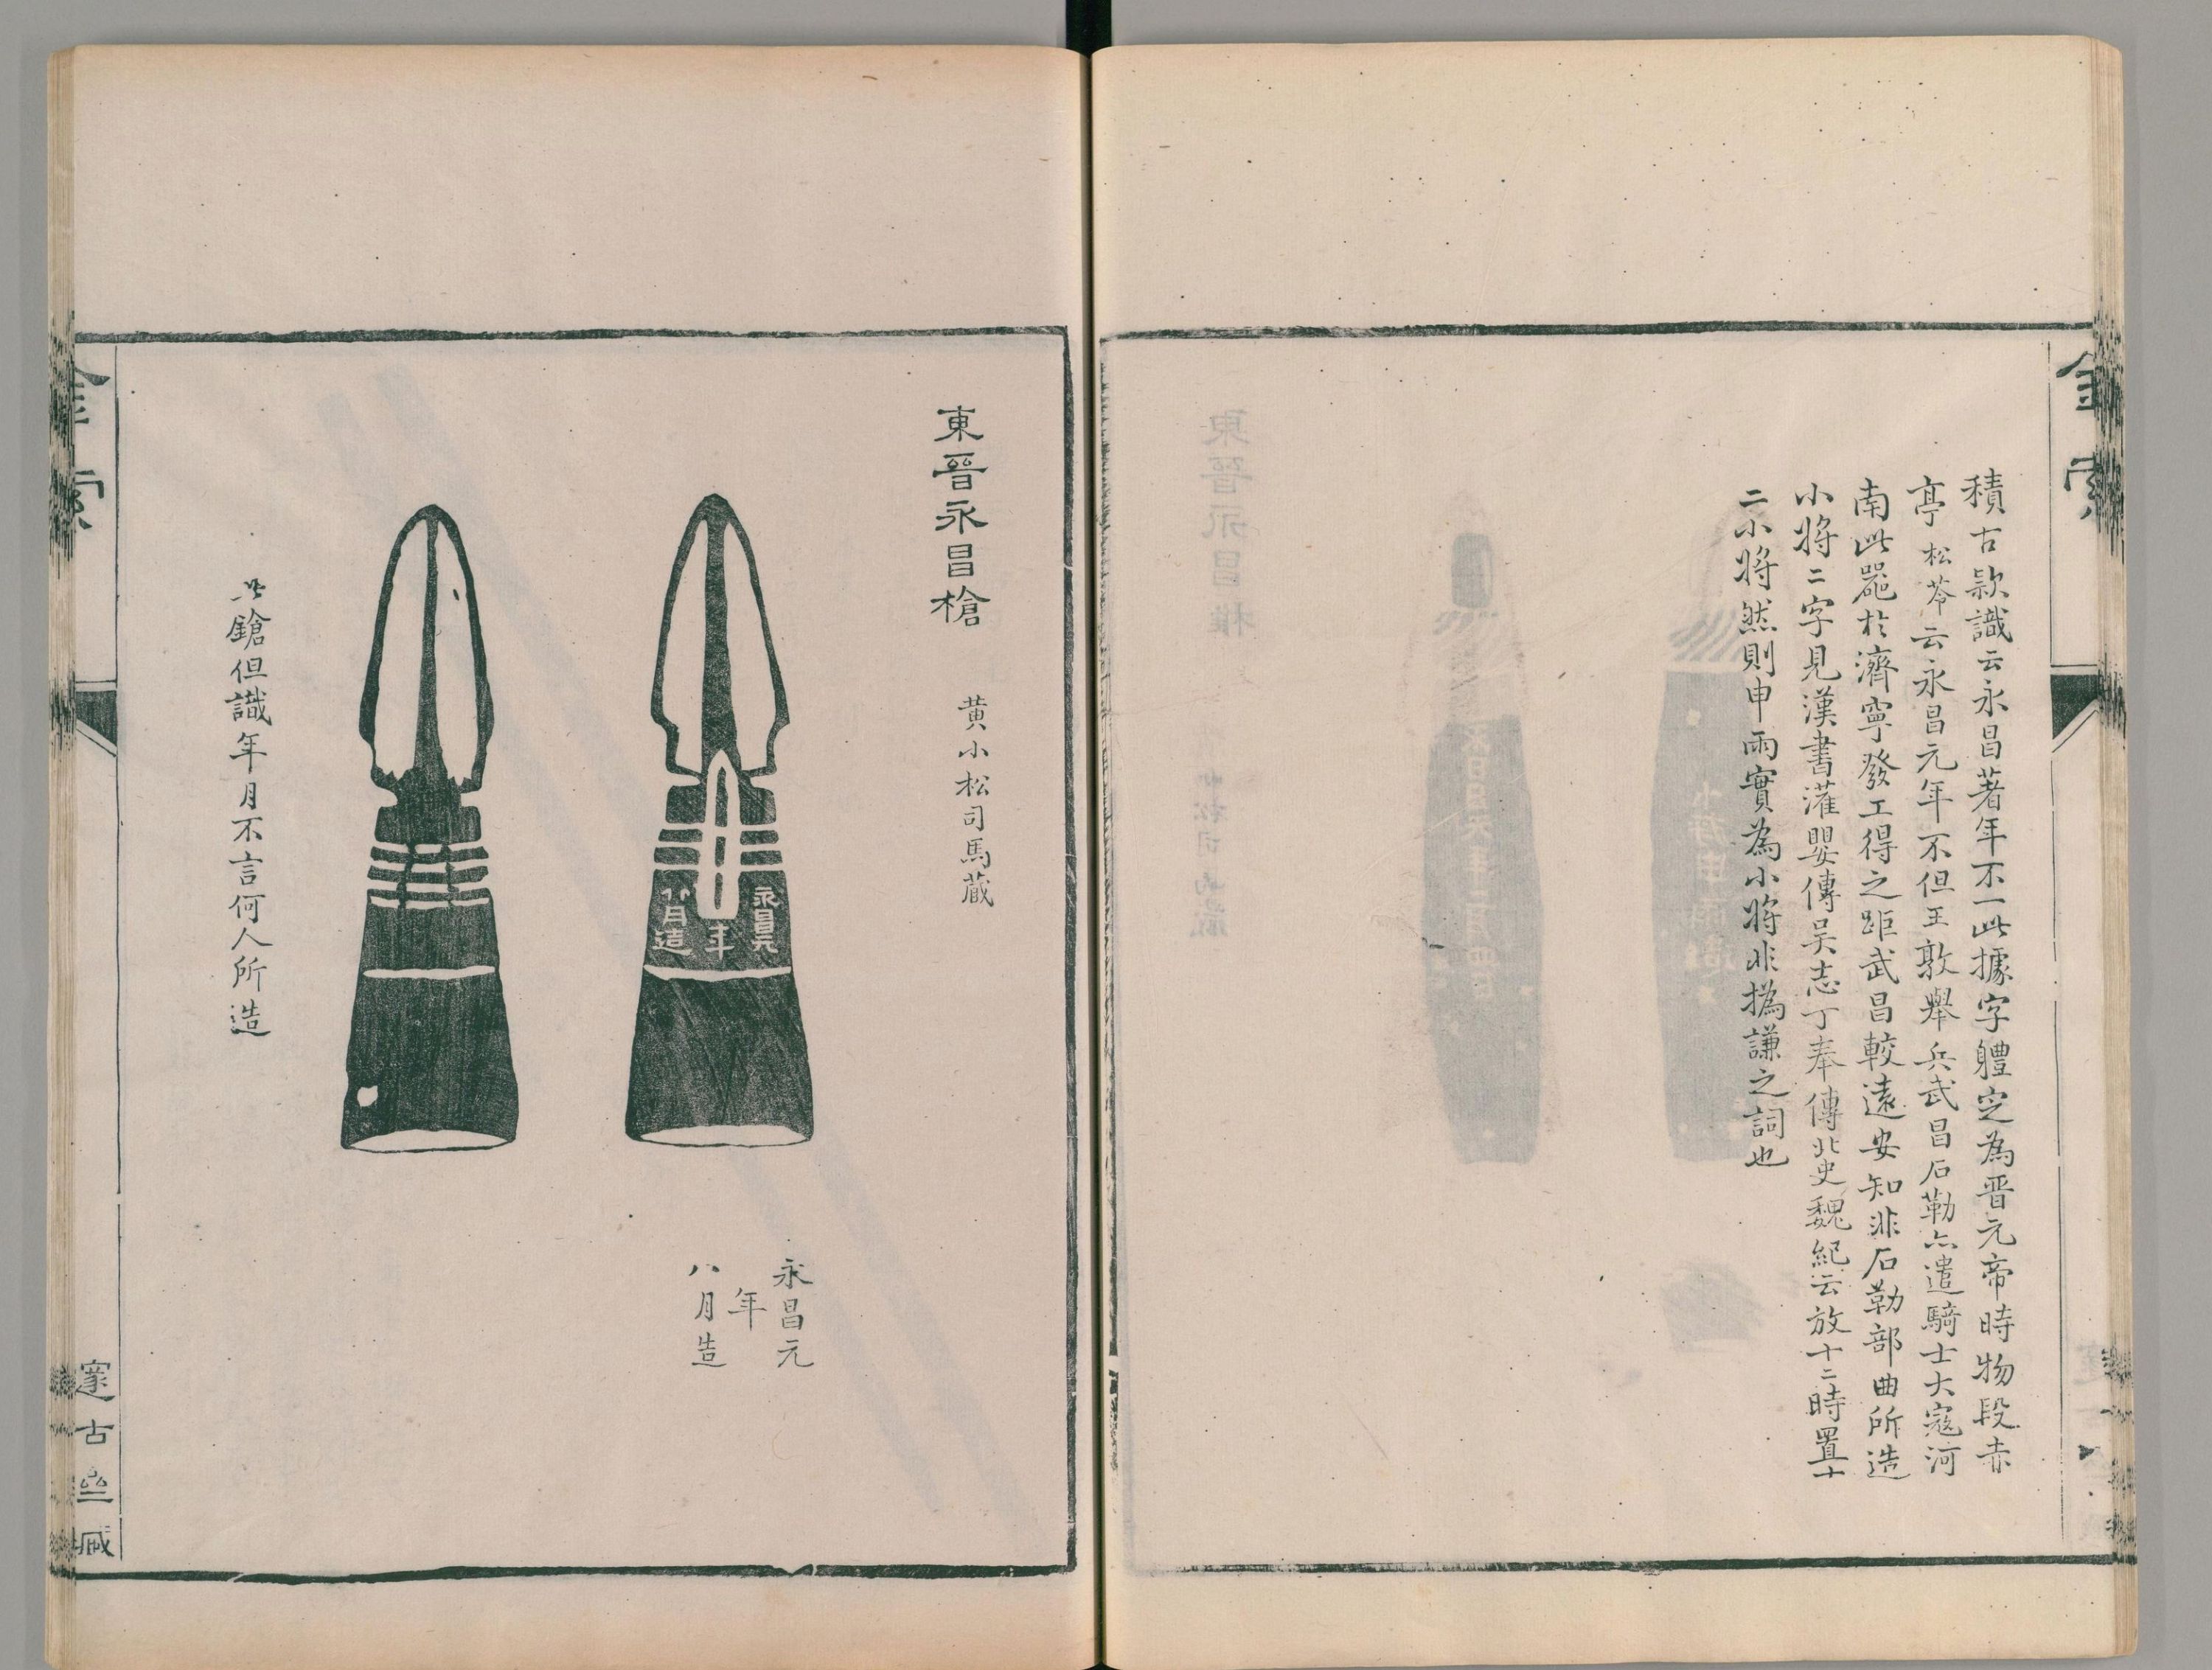 金索
積古款識云永昌著年不一此據字體定為晋元帝時物段赤
亭松苓云永昌元年不但王敦舉兵武昌石勒亦遣騎士大寇河
南此噐於濟寧發工得之距武昌較遠安知非石勒部曲所造
小將二字見漢書灌嬰傳吴志丁奉傳北史魏紀云放十二時置十
二小將然則申雨實為小將非撝謙之詞也
東晉永昌槍
黄小松司馬藏
永昌元
年
八月造
永昌元
年
八月造
此鎗但識年月不言何人所造
金索
邃古𠀤臧